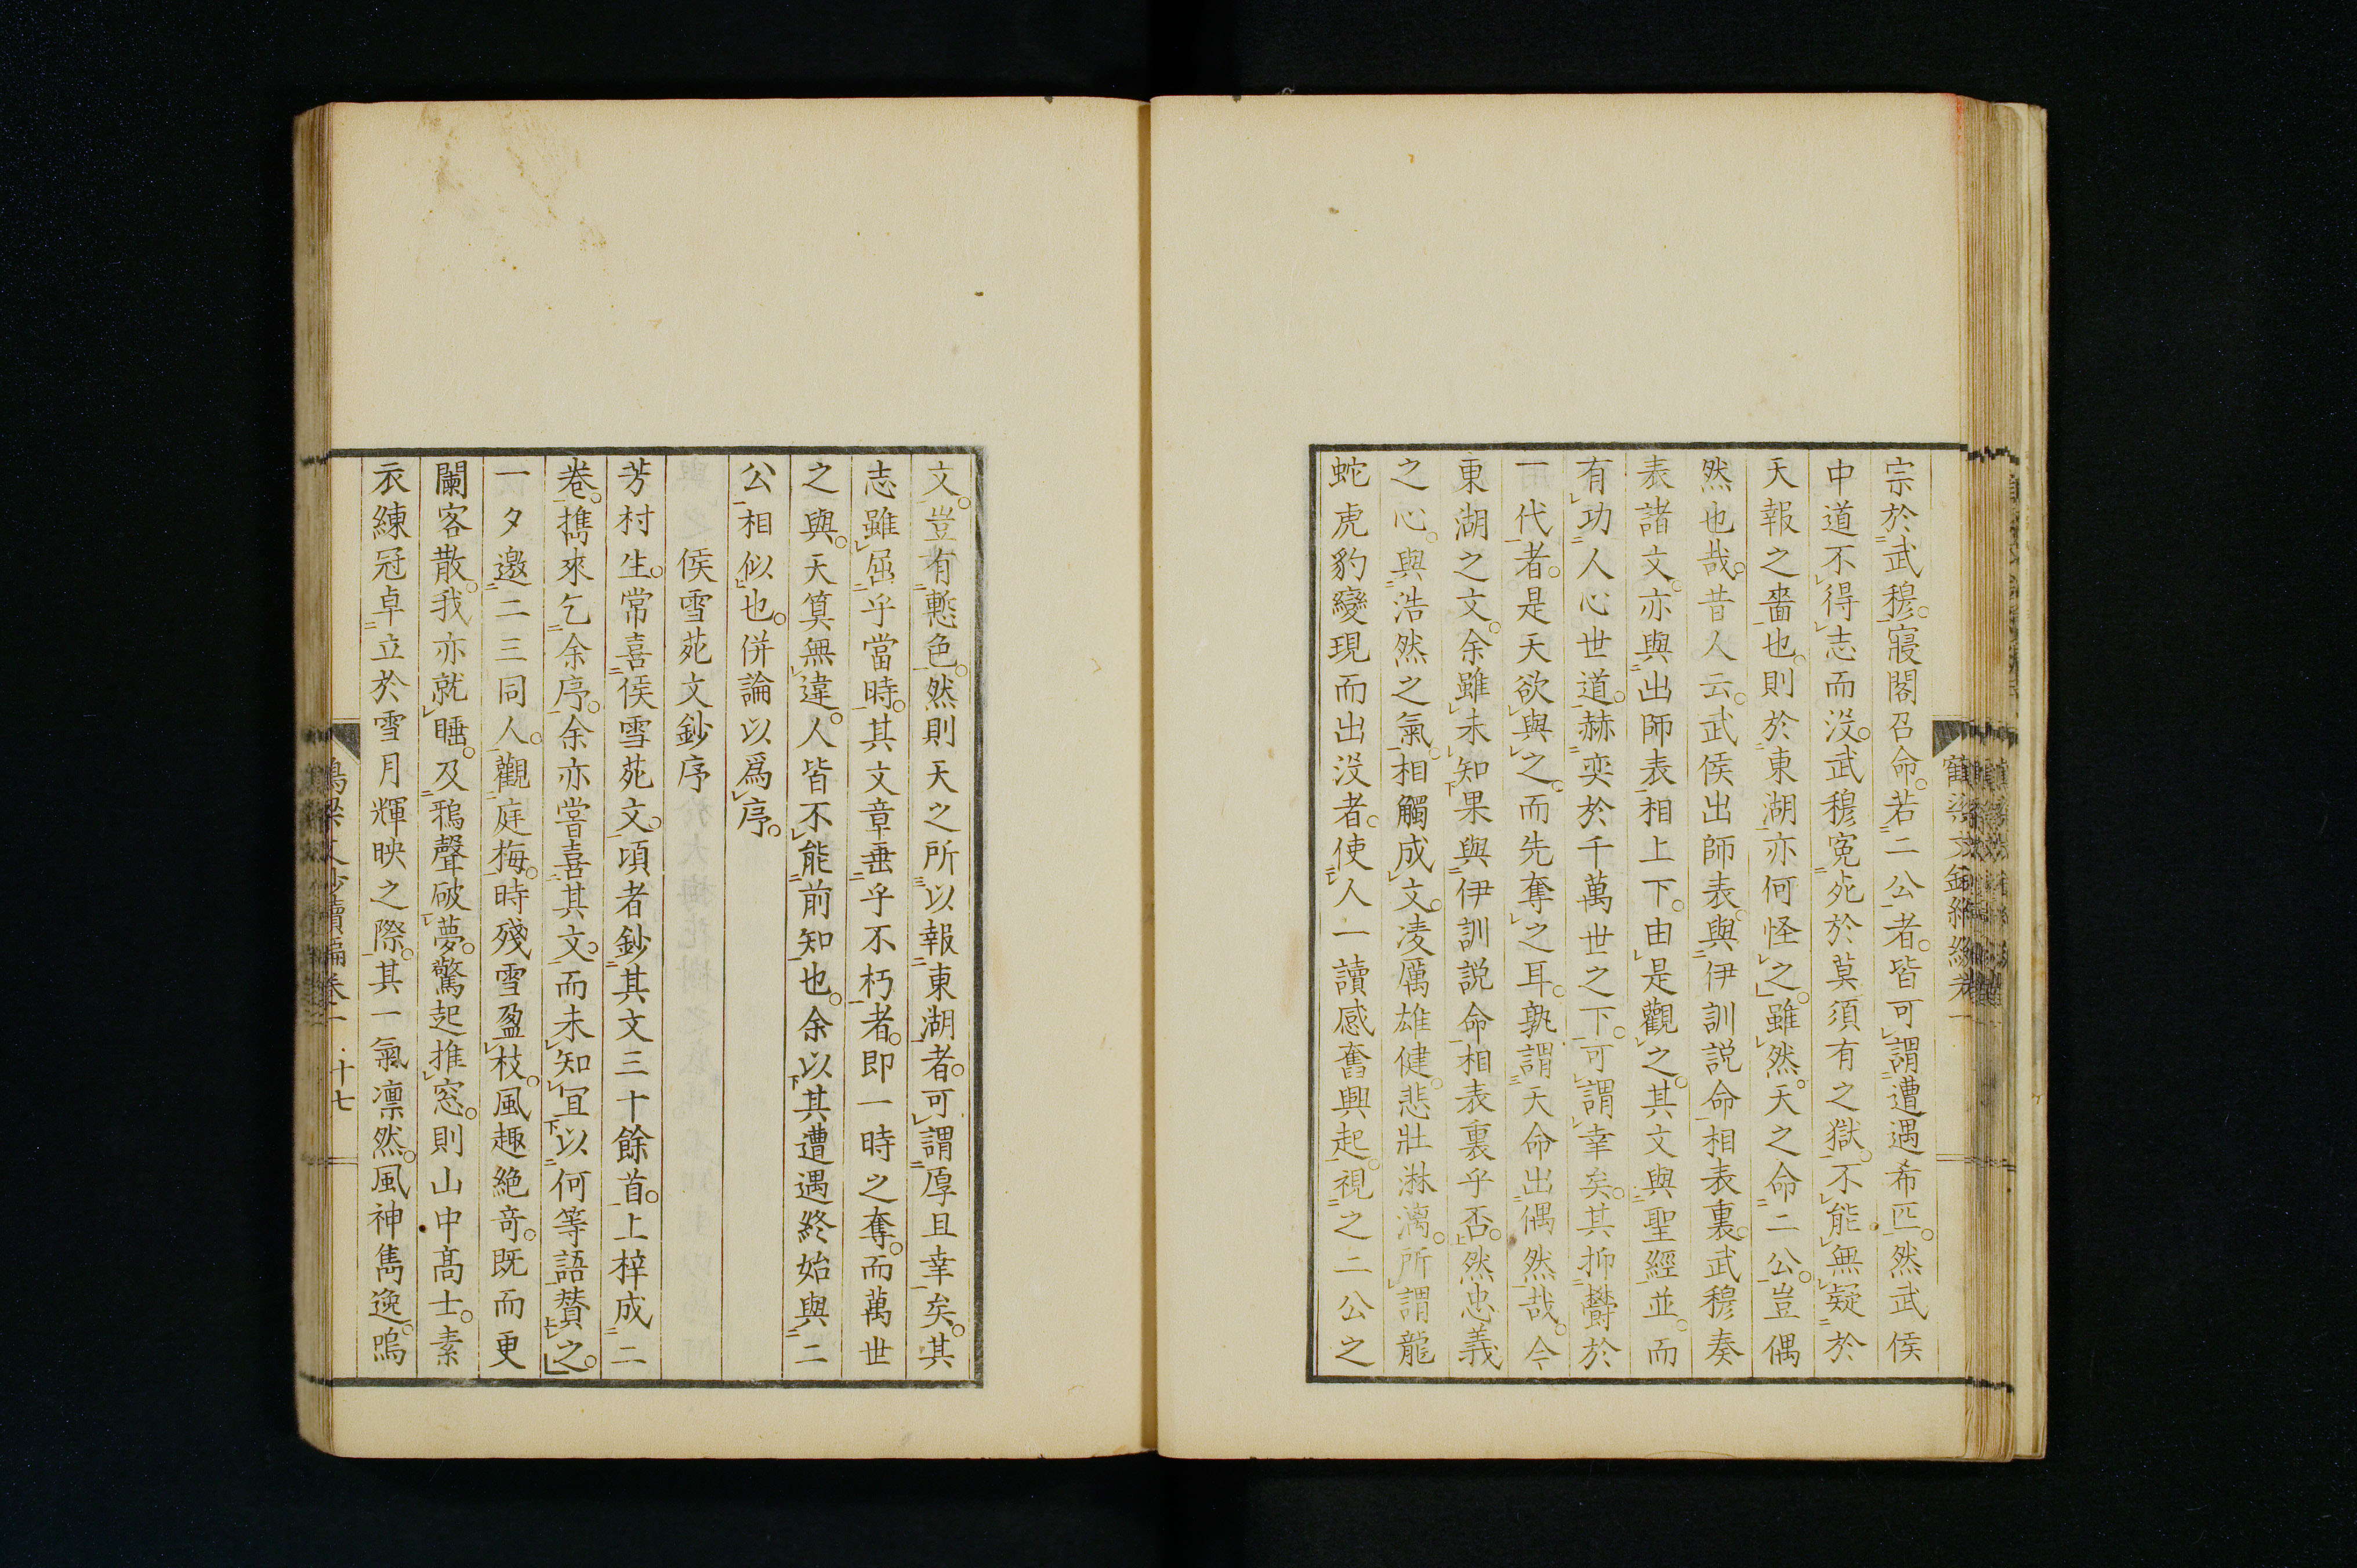 宗於武穆。寢閣召命。若二公者。皆可謂遭遇希匹。然武侯
中道不得志而沒。武穆寃死於莫須有之獄。不能無疑於
天報之嗇也。則於東湖亦何怪之。雖然。天之命二公。豈偶
然也哉。昔人云。武侯出師表。與伊訓説命相表裏。武穆奏
表諸文。亦與出師表相上下。由是觀之。其文與聖經並。而
有功人心世道。赫奕於千萬世之下。可謂幸矣。其抑欝於
一代者。是天欲與之。而先奪之耳。孰謂天命出偶然哉。今
東湖之文。余雖未知果與伊訓説命相表裏乎否。然忠義
之心。與浩然之氣。相觸成文。凌厲雄健。悲壯淋漓。所謂龍
蛇虎豹變現而出沒者。使人一讀感奮興起。視之二公之
文。豈有慙色。然則天之所以報東湖者。可謂厚且幸矣。其
志雖屈乎當時。其文章垂乎不朽者。即一時之奪。而萬世
之與。天算無違。人皆不能前知也。余以其遭遇終始與二
公相似也。併論以爲序。
侯雪苑文鈔序
芳村生。常喜侯雪苑文。頃者鈔其文三十餘首。上梓成二
卷。携來乞余序。余亦嘗喜其文。而未知宜以何等語賛之。
一夕邀二三同人。觀庭梅。時殘雪盈枝。風趣絶奇。既而更
闌客散。我亦就睡。及鴉聲破夢。驚起推窓。則山中高士。素
衣練冠卓立於雪月輝映之際。其一氣凛然。風神雋逸。嗚
十七